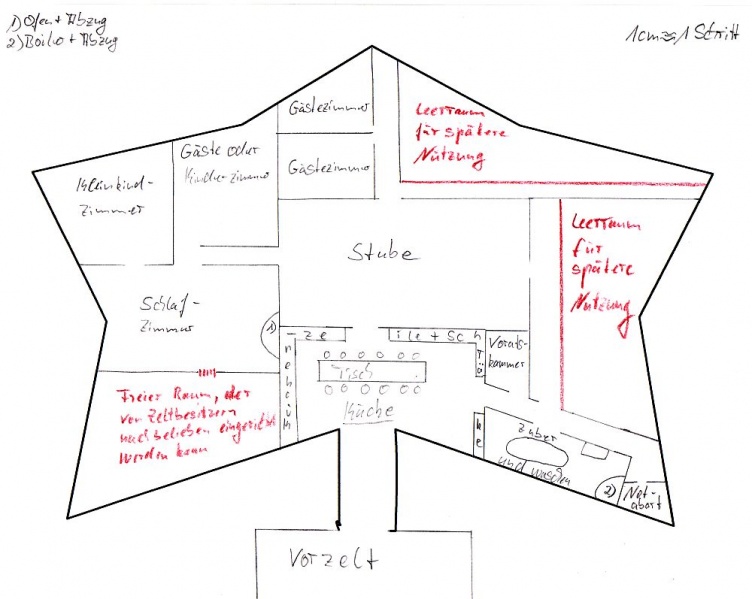 1) Ofen + Abzug
2) Boiler + Abzug
1cm za 1 Schritt
Gästezimmer
Leerraum
für spätere
Nutzung
Gäste oder
Kinderzimmer
Gästezimmer
Kleinkind-
zimmer
Leerraum
für
spätere
Nutzung
Stube
Schlaf-
zimmer
1)
Vorats-
kammer
Tisch
Küche
Freier Raum, der
von Zeltbesitzern
nach belieben eingerichtet
werden kann
Zuber
und waschen
2)
Not-
abort
Vorzelt